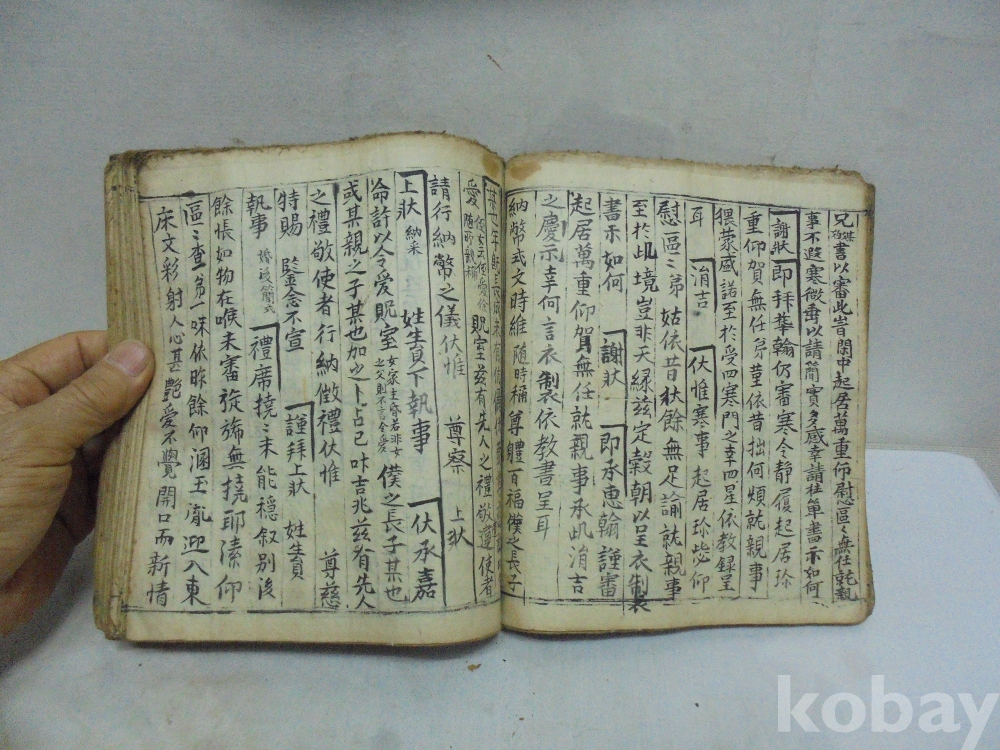 書以審此時閑中起居萬重仰慰區區無任就親
事不遐寒微垂以請簡實多感幸請柱單書示如何
謝狀 卽拜華翰仍審寒令靜履起居珍
重仰賀無任弟菫依昔拙何煩就親事
猥蒙盛諾至於受四寒門之幸四星依教錄呈
耳 涓吉 伏惟寒事起居珍毖仰
慰區區弟姑依昔狀餘無足諭就親事
至於此境豈非天緣玆定穀朝以呈衣制
書示如何 謝狀 卽承惠翰謹審
起居萬重仰賀無任就親事承此涓吉
之慶示幸何言衣製依教書呈耳
納幣式文時維 隨時稱 尊體百福僕之長子
愛 貺室玆有先人之禮敬遣使者
請行納幣之儀伏惟 尊察 上狀
上狀 納采 姓生員下執事 伏承嘉
命許以令愛貺室 女家主昏若非女之父則不言令愛 僕之長子某也
或某親之子某也加之卜占已叶吉兆玆有先人
之禮敬使者行納徵禮伏惟 尊慈
特賜 鑒念不宣 謹拜上狀 姓生員
執事 婚後簡式 禮席撓撓未能穩叙別後
餘悵如物在喉未審旋旆無撓耶溸仰
區區查弟一味依昨餘仰溷玉胤迎入東
床文彩射人心甚艶愛不覺開口而新情
kobay